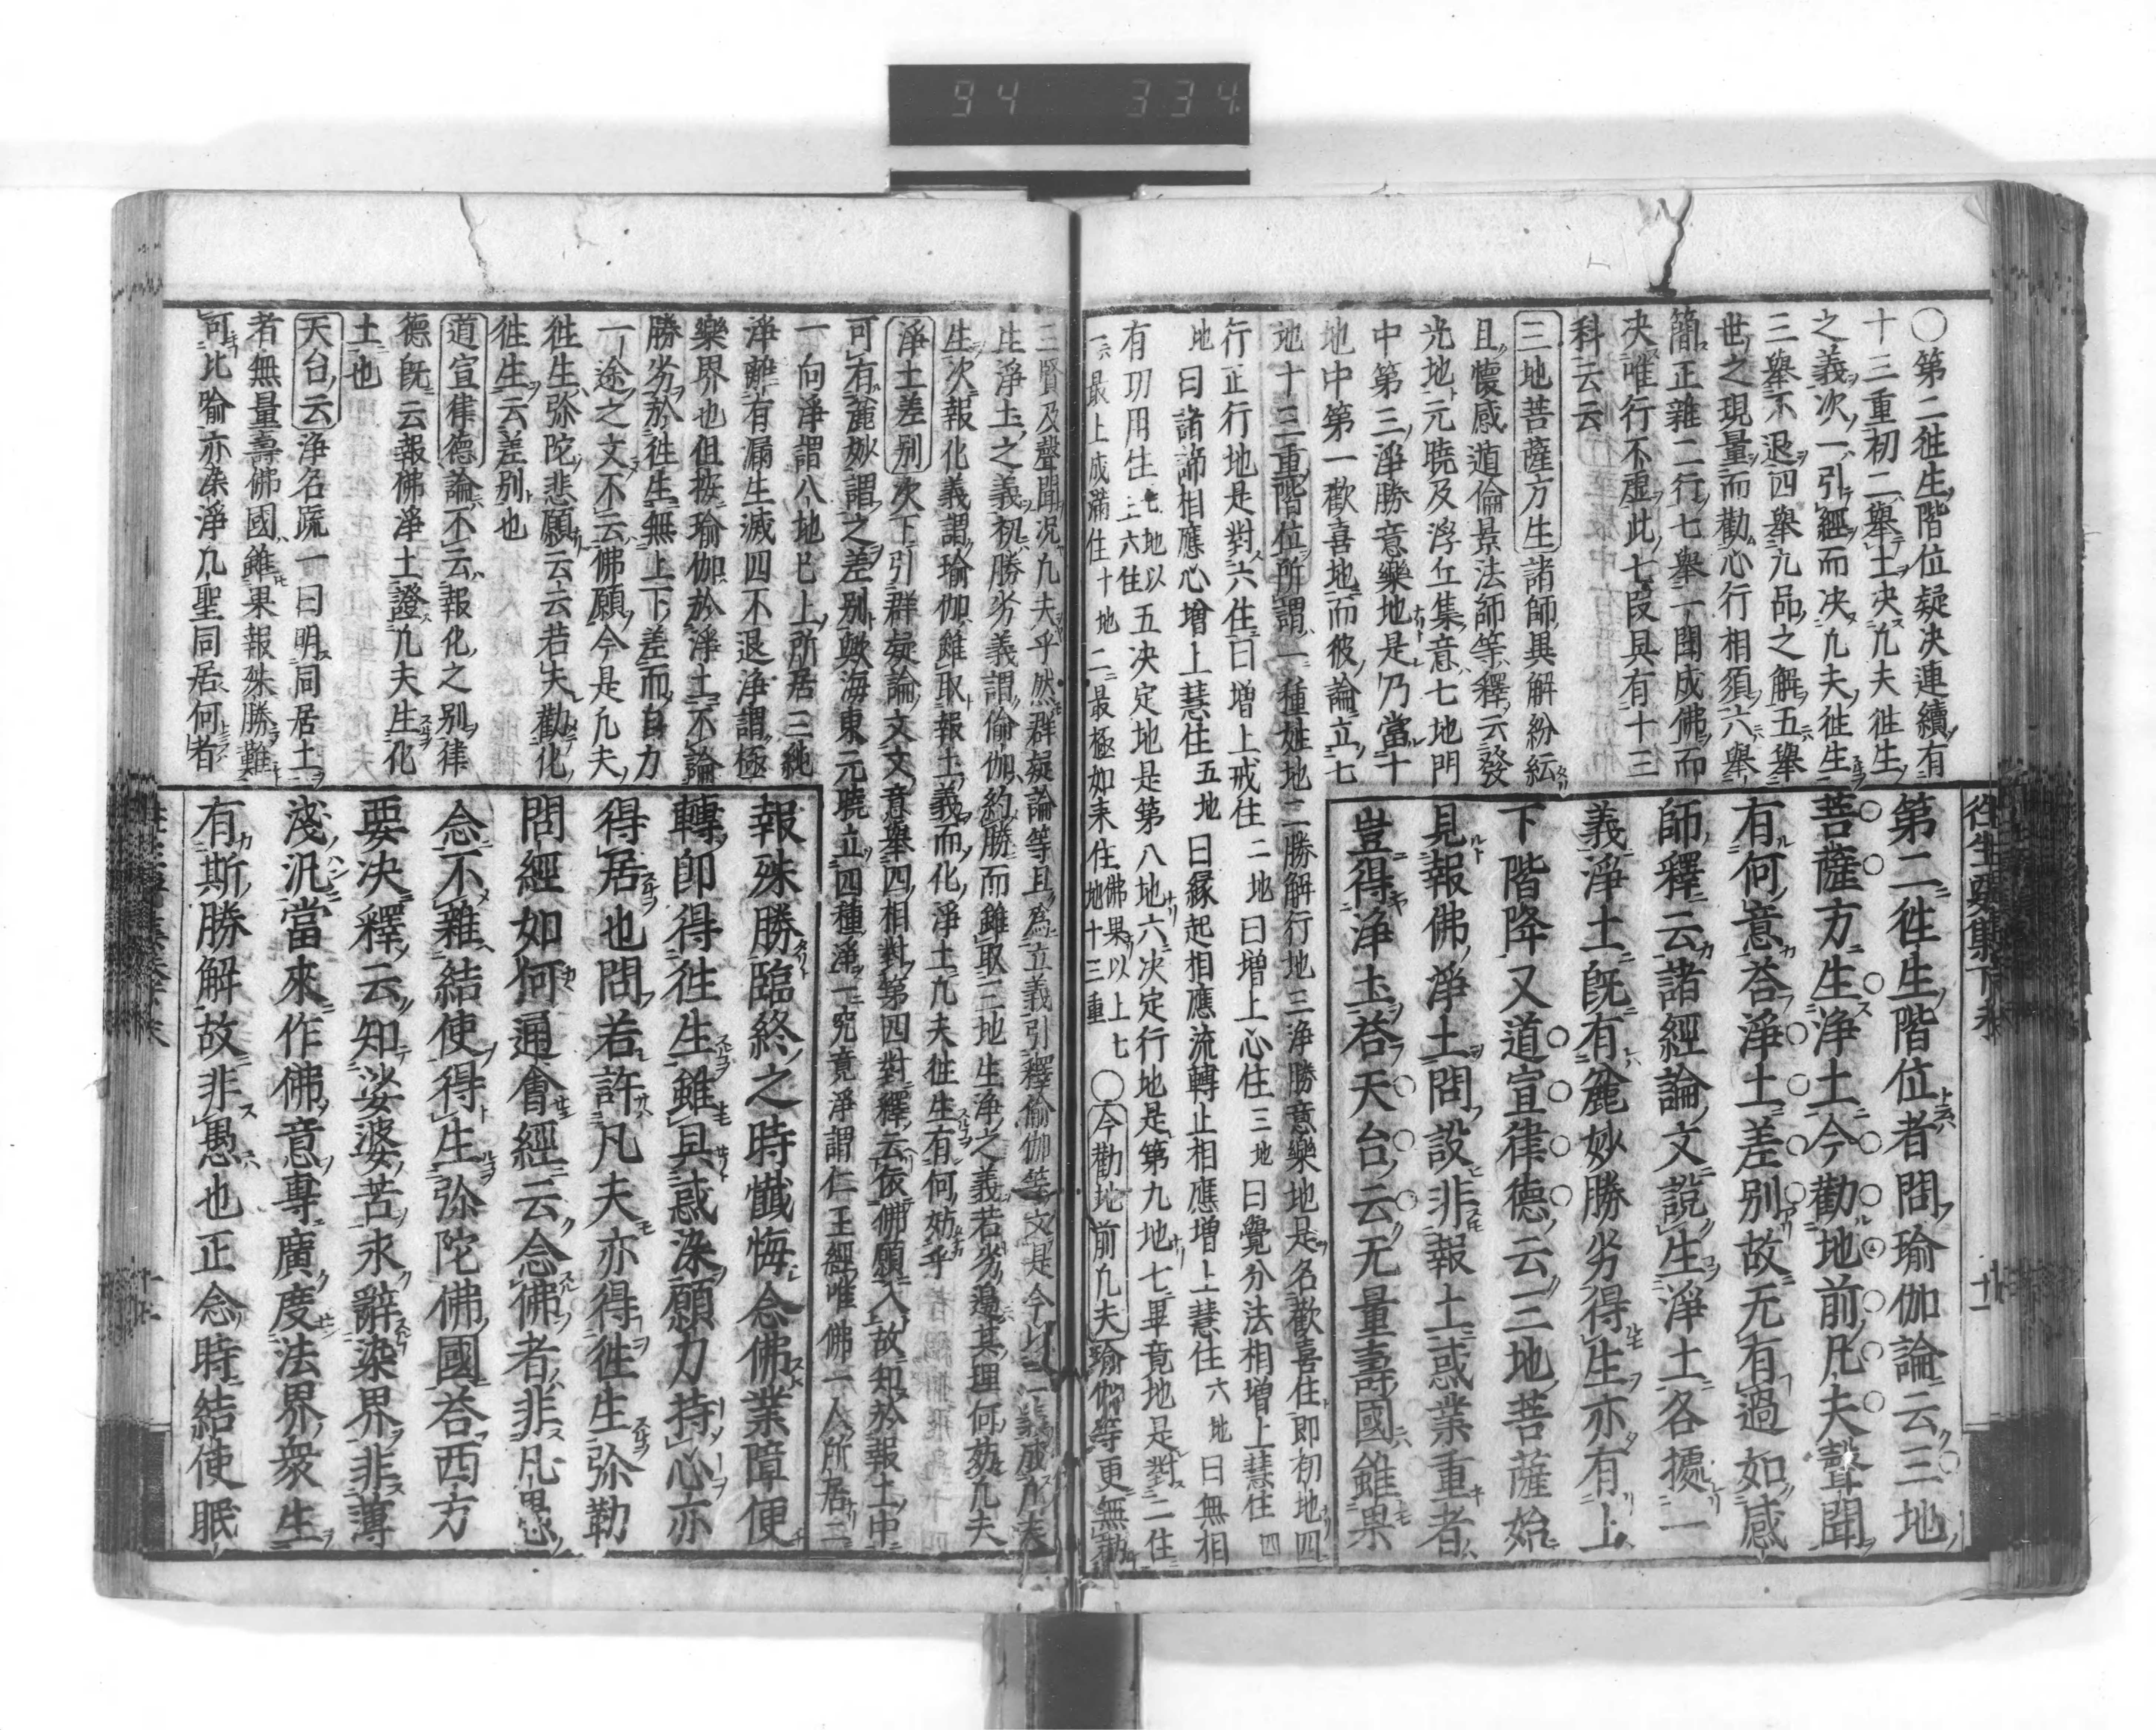 94 334
往生要集下末
十一
第二徃生階位者問瑜伽論云三地
菩薩方生淨土今勸地前凡夫聲聞
有何意荅淨土差别故无有過如感
師釋云諸經論文說生淨土各據一
義淨土既有麁妙勝劣得生亦有上
下階降又道宣律德云三地菩薩始
見報佛淨土問設非報土惑業重者
豈得淨土荅天台云无量壽國雖果
○第二徃生階位疑决連續有
十三重初二舉土决凢夫徃生
之義次一引經而决凢夫徃生
三舉不退四舉九品之解五舉
世之現量而勸心行相須六舉
簡正雜二行七舉一聞成佛而
决唯行不虚此七叚具有十三
科云云
三地菩薩方生諸師異解紛紜
且懷感遁倫景法師等釋云發
光地元曉及浮丘集意七地門
中第三淨勝意樂地是乃當十
地中第一歡喜地而彼論立七
地十三重階位所謂一種姓地二勝解行地三淨勝意樂地是名歡喜住即初地四
行正行地是對六住曰增上戒住二地曰增上心住三地曰覺分法相增上慧住四
地曰諸諦相應心增上慧住五地曰縁起相應流轉止相應增上慧住六地曰無相
有功用生七地以上六住五决定地是第八地六决定行地是第九地七畢竟地是對二住
一最上成滿住十地二最極如来住佛果以上七地十三重○今勸地前凢夫瑜伽等更無勸
三賢及聲聞况凢夫乎然群疑論等且為立義引釋瑜伽等文是今以一義成凢夫
生淨土之義初勝劣義謂瑜伽約勝而雖取三地生淨之義若劣邊其理何妨凢夫
生次報化義謂瑜伽雖取報土義而化淨土凢夫徃生有何妨乎
淨土差别次下引群疑論文文意舉四相對第四對釋云依佛願入故知於報土中
可有麁妙謂之差别歟海東元曉立四種淨一究竟淨謂仁王經唯佛一人所居二
一向淨謂八地已上所居三純
淨雜有漏生滅四不退淨謂極
樂界也但按瑜伽於淨土不論
勝劣於徃生無上下差而自力
一途之文不云佛願今是凢夫
徃生弥陀悲願云云若失勸化
徃生云差别也
道宣律德論不云報化之别律
德既云報佛淨土證凢夫生化
土也
天台云淨名疏一曰明同居土
者無量壽佛國雖果報殊勝難
可比喻亦染淨凢聖同居何者
報殊勝臨終之時懺悔念佛業障便
轉即得徃生雖具惑染願力持心亦
得居也問若許凡夫亦得徃生弥勒
問經如何通會經云念佛者非凡愚
念不雜結使得生弥陀佛國荅西方
要决釋云知娑婆苦永辭染界非薄
淺汎當來作佛意專廣度法界衆生
有斯勝解故非愚也正念時結使眠